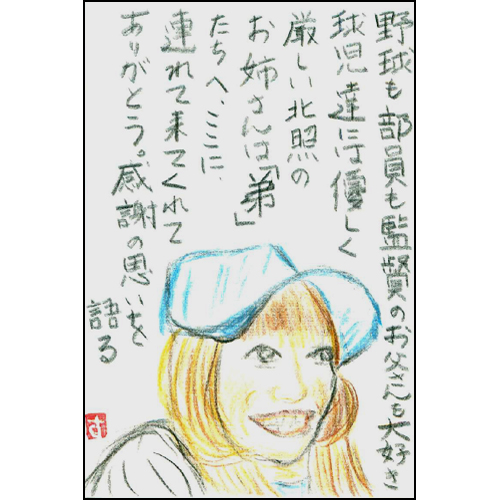 野球も部員も監督のお父さんも大好き
球児達には優しく
厳しい北照の
お姉さんは「弟」
たちへ、ここに、
連れて来てくれて
ありがとう。感謝の思いを
語る
す